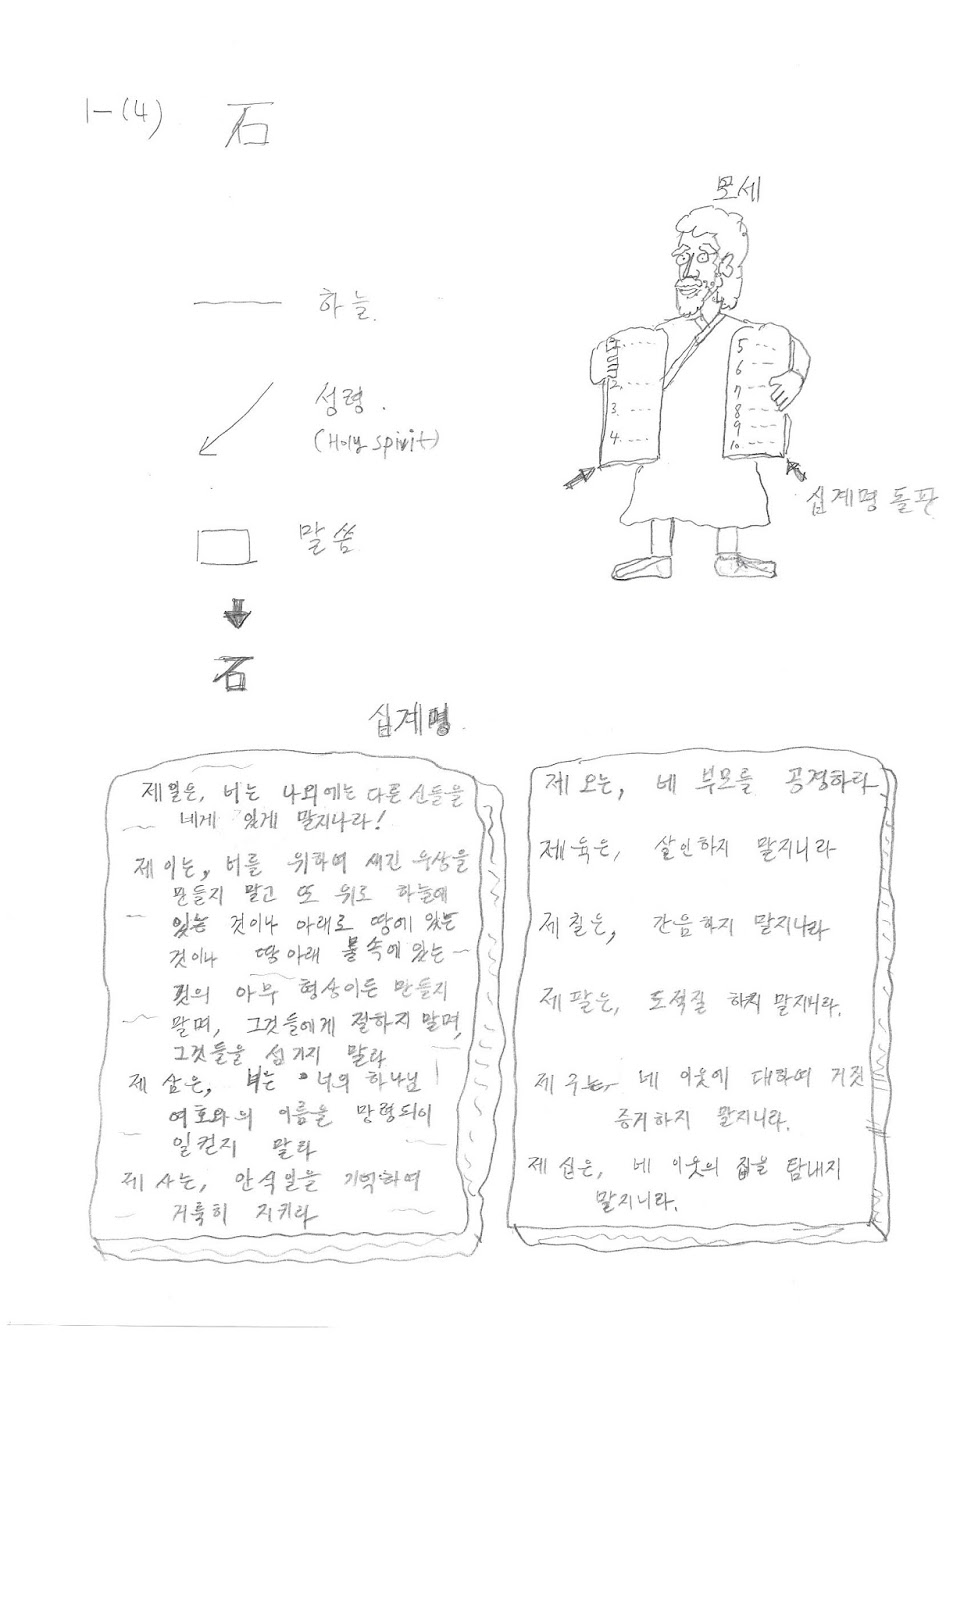 1-(4) 石
모세
하늘.
성령.
(Holy spirit)
말씀
石
1.
2.
3.
4.
5
6
7
8
9
10.
십계명 돌판
십계명.
제일은, 너는 나외에는 다른 신들을
네게 있게 말지니라!
제이는, 너를 위하여 새긴 우상을
만들지 말고 또 위로 하늘에
있는 것이나 아래로 땅에 있는
것이나 땅아래 물속에 있는
것의 아무 형상이든 만들지
말며, 그것들에게 절하지 말며,
그것들을 섬기지 말라
제 삼은, 너는 너의 하나님
여호와의 이름을 망령되이
일컫지 말라
제 사는, 안식일을 기억하여
거룩히 지키라
제 오는, 네 부모를 공경하라
제 육은, 살인하지 말지니라
제 칠은, 간음하지 말지니라
제 팔은, 도적질 하지 말지니라.
제 구는, 네 이웃에 대하여 거짓
증거하지 말지니라.
제 십은, 네 이웃의 집을 탐내지
말지니라.